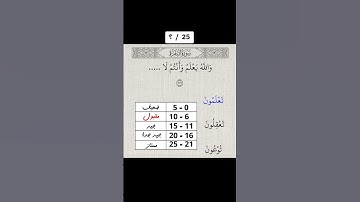 ؟ / 25
سُورَةُ البَقَرَةِ
وَاللَّهُ يَعْلَمُ وَأَنْتُمْ لَا .....
تَعْلَمُونَ
تَعْقِلُونَ
تُوعُونَ
0 - 5 ضعيف
6 - 10 مقبول
11 - 15 جيد
16 - 20 جيد جدا
21 - 25 ممتاز